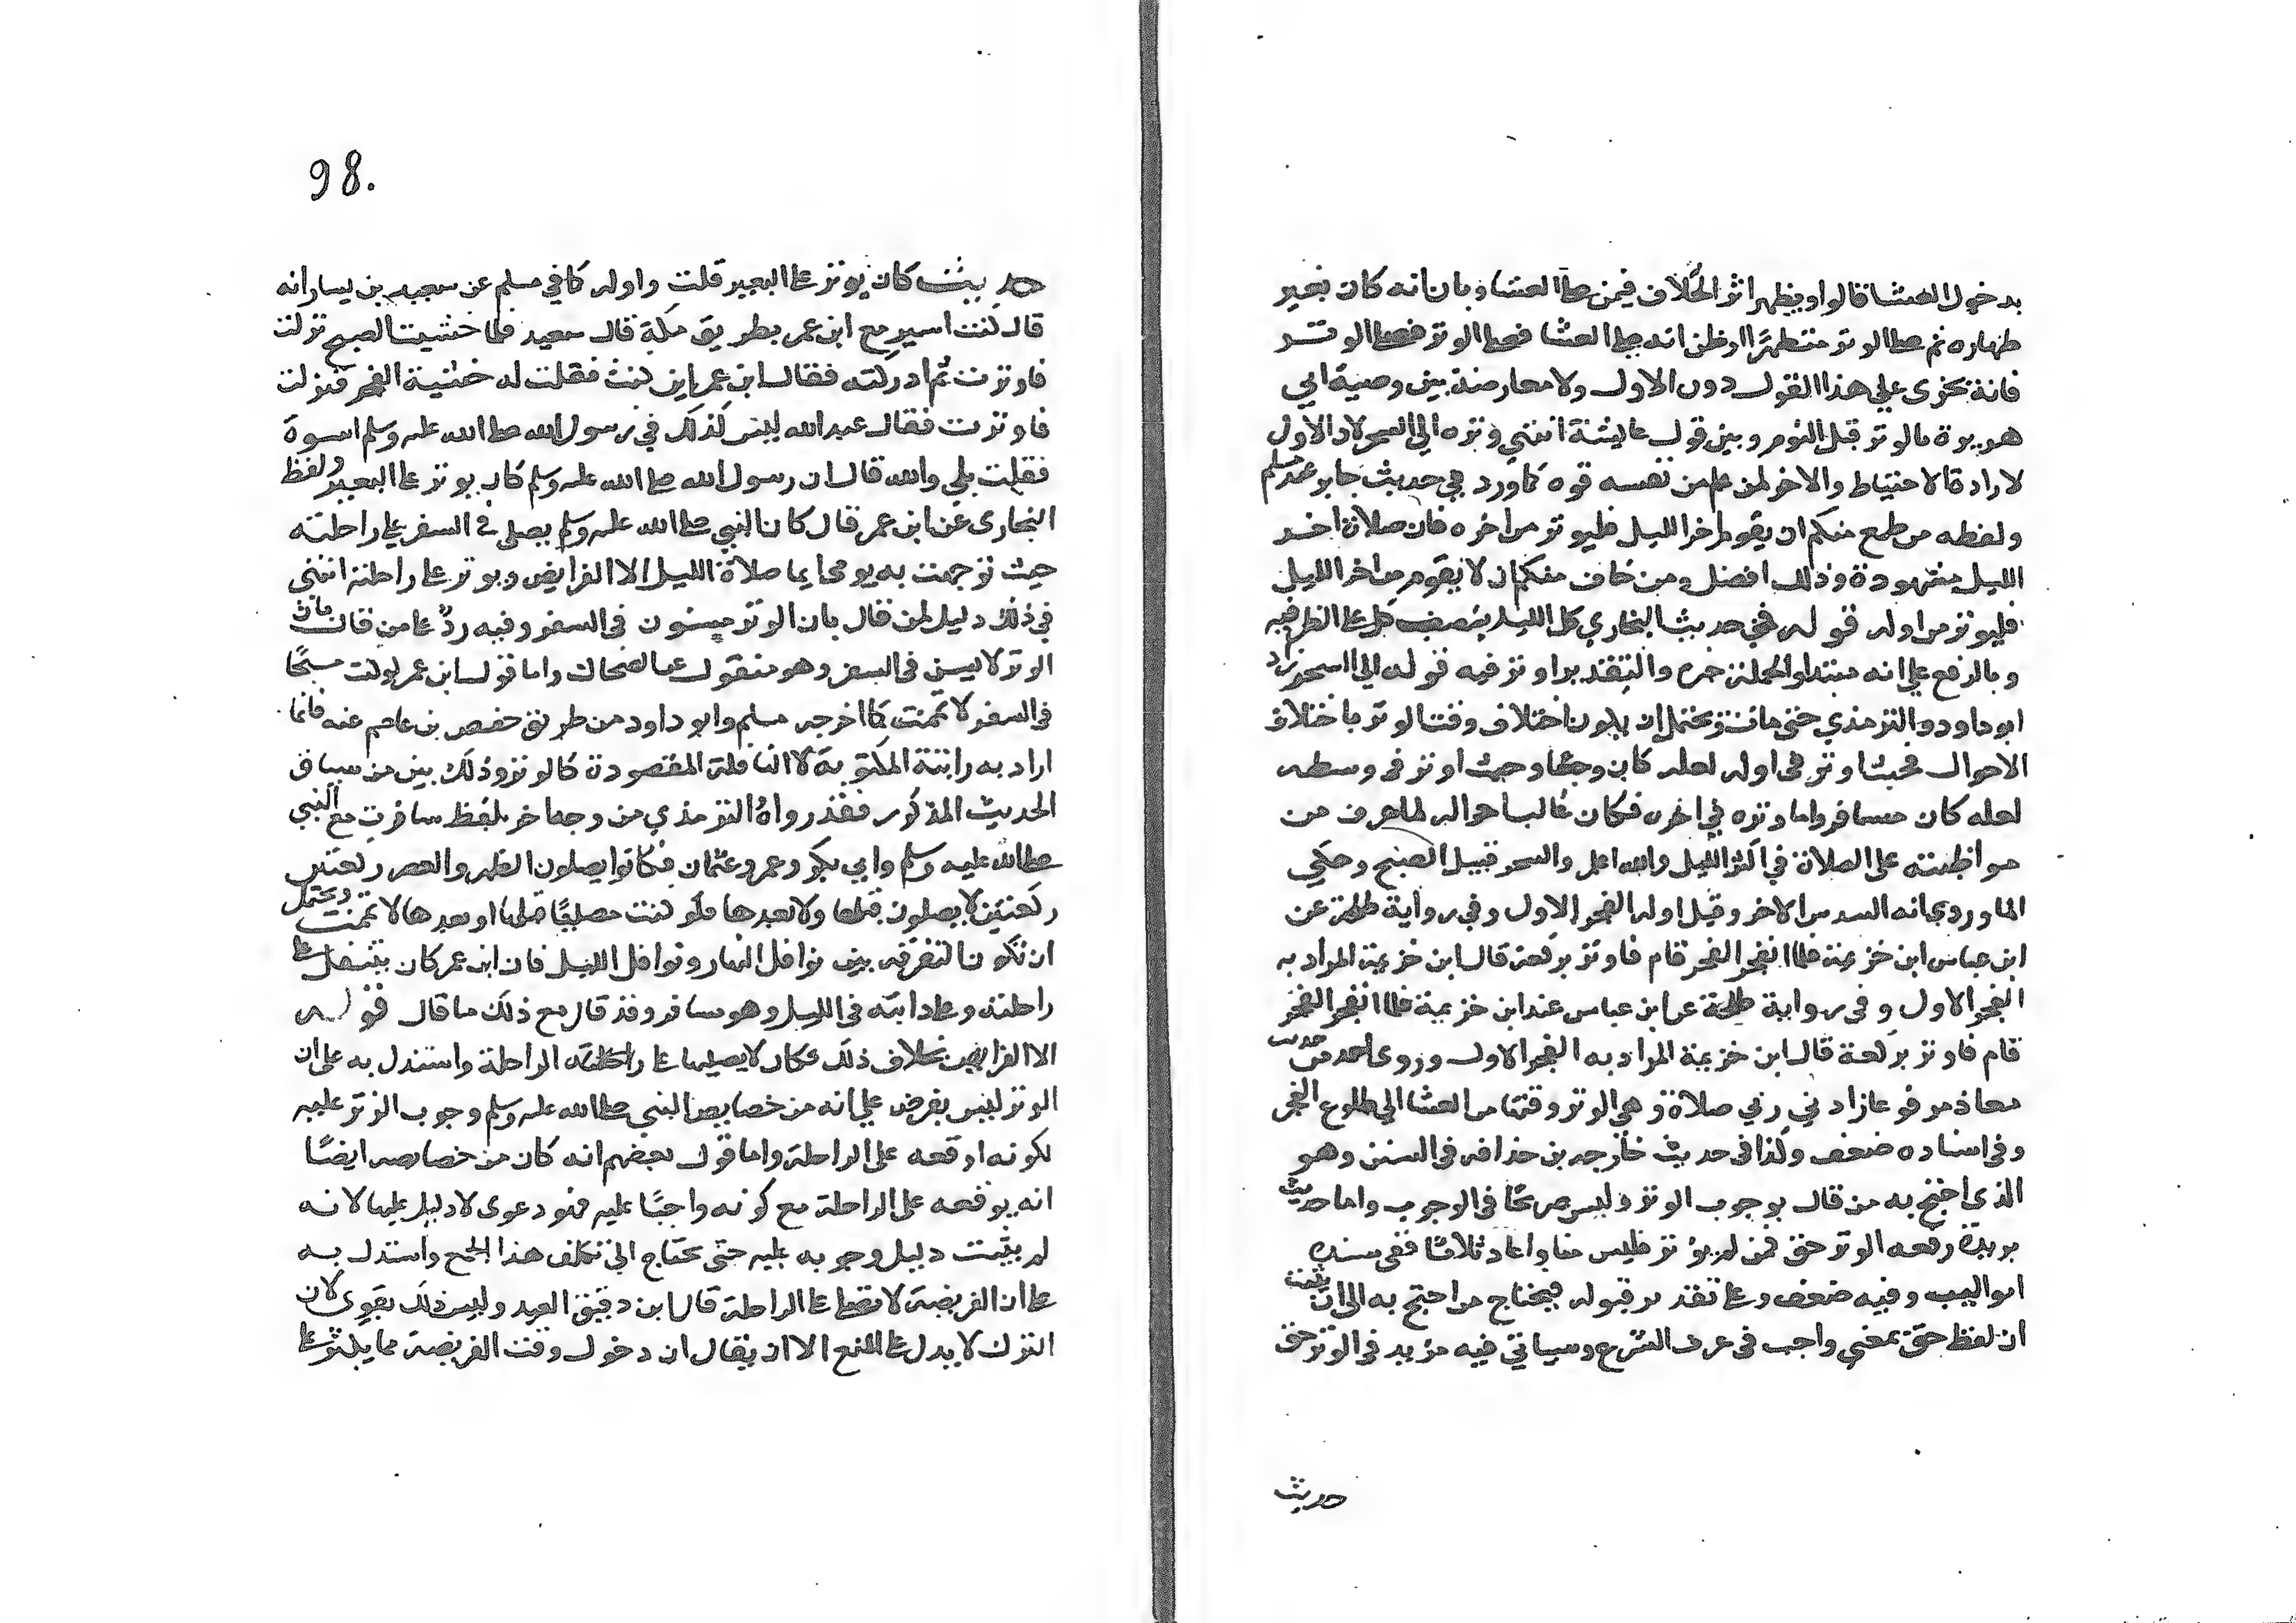 بدخول العشا قالوا ويظهر اثر الخلاف فيمن صلى العشا وبان انه كان بغير
طهاره ثم صلى الوتر متطهرًا او ظن انه صلى العشا فصلى الوتر فصلى الوتر
فانه يجزي علي هذا القول دون الاول ولا معارضة بين وصية ابي
هريرة بالوتر قبل النوم وبين قول عايشة انتهي وتره الي السحر لان الاول
لارادة الاحتياط والاخر لمن علم من نفسه قوه كما ورد في حديث جابر عند مسلم
ولفظه من طمع منكم ان يقوم اخر الليل فليوتر من اخره فان صلاة اخر
الليل مشهودة وذلك افضل ومن خاف منكم ان لا يقوم من اخر الليل
فليوتر من اوله قوله في حديث البخاري كل الليل بنصف كل على الظرفيه
وبالرفع علي انه مبتدا والجملة خبره والتقدير اوتر فيه قوله الي السحر زاد
ابو داود والترمذي حتى مات ويحتمل ان يكون اختلاف وقت الوتر باختلاف
الاحوال فحيث اوتر في اوله لعله كان وجعًا وحيث اوتر في وسطه
لعله كان مسافرا واما وتره في اخره فكان غالب احواله لما عرف من
مواظبته على الصلاة في اكثر الليل والله اعلم والسحر قبيل الصبح وحكي
الماوردي انه السدس الاخر وقيل اوله الفجر الاول وفي رواية طلحة عن
ابن عباس ابن خزيمة فلما انفجر الفجر قام فاوتر بركعة قال ابن خزيمة المراد به
الفجر الاول وفي رواية طلحة عن ابن عباس عند ابن خزيمة فلما انفجر الفجر
قام فاوتر بركعة قال ابن خزيمة المراد به الفجر الاول وروى احمد من حديث
معاذ مرفوعا زادني ربي صلاة وهي الوتر وقتها من العشا الي طلوع الفجر
وفي اسناده ضعف وكذا في حديث خارجه بن حذافه في السنن وهو
الذي احتج به من قال بوجوب الوتر وليس صريحًا في الوجوب واما حديث
بريدة رفعه الوتر حق فمن لم يوتر فليس منا واعاد ثلاثًا ففي سنده
ابو المنيب وفيه ضعف وعلى تقدير قبوله فيحتاج من احتج به الى ان يثبت
ان لفظ حق بمعني واجب في عرف الشرع وسياتي فيه مزيد في الوتر حق
حديث
98.
حديث كان يوتر على البعير قلت واوله كما في مسلم عن سعيد بن يسار انه
قال كنت اسير مع ابن عمر بطريق مكة قال سعيد فلما خشيت الصبح نزلت
فاوترت ثم ادركته فقال ابن عمر اين كنت فقلت له خشية الفجر فنزلت
فاوترت فقال عبد الله ليس كذلك في رسول الله صلى الله عليه وسلم اسوة
فقلت بلي والله قال ان رسول الله صلى الله عليه وسلم كان يوتر على البعير ولفظ
البخارى عن ابن عمر قال كان النبي صلى الله عليه وسلم يصلى في السفر على راحلته
حيث توجهت به يومي ايما صلاة الليل الا الفرايض ويوتر على راحلته انتهى
في ذلك دليل لمن قال بان الوتر مسنون في السفر وفيه ردّ على من قال بان
الوتر لا يسن في السفر وهو منقول عن الضحاك واما قول ابن عمر لو كنت مسبحًا
في السفر لاتممت كما اخرجه مسلم وابو داود من طريق حفص بن عاصم عنه فانما
اراد به راتبة المكتوبة لا النافلة المقصودة كالوتر وذلك بين من سياق
الحديث المذكور فقد رواه الترمذي من وجه اخر بلفظ سافرت مع النبي
صلى الله عليه وسلم وابي بكر وعمر وعثمان فكانوا يصلون الظهر والعصر ركعتين
ركعتين لا يصلون قبلها ولا بعدها فلو كنت مصليًا قبلها او بعدها لاتممت ويحتمل
ان تكون التفرقه بين نوافل النهار ونوافل الليل فان ابن عمر كان يتنفل على
راحلته وعلى دابته في الليل وهو مسافر وقد قال مع ذلك ما قال قوله
الا الفرايض بخلاف ذلك فكان لا يصليها على راحلته الراحلة واستدل به على ان
الوتر ليس بفرض علي انه من خصايص النبي صلى الله عليه وسلم وجوب الوتر عليه
لكونه اوقعه على الراحلة واما قول بعضهم انه كان من خصايصه ايضًا
انه يوقعه على الراحلة مع كونه واجبًا عليه فهو دعوى لا دليل عليها لانه
لم يثبت دليل وجوبه عليه حتى يحتاج الى تكلف هذا الجمع واستدل به
على ان الفريضة لا تصلى على الراحلة قال ابن دقيق العيد وليس ذلك بقوي لان
الترك لا يدل على المنع الا ان يقال ان دخول وقت الفريضة مما يكثر على